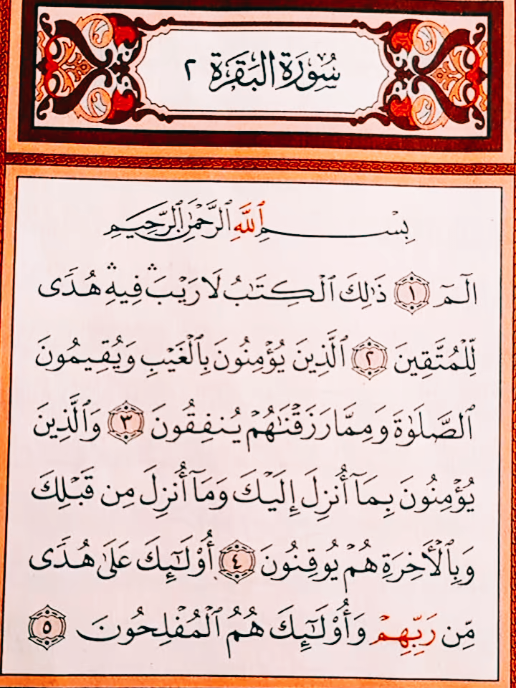 سُورَةُ الْبَقَرَةِ ٢
بِسْمِ ٱللَّهِ ٱلرَّحْمَٰنِ ٱلرَّحِيمِ
الٓمٓ ١ ذَٰلِكَ ٱلْكِتَٰبُ لَا رَيْبَ ۛ فِيهِ ۛ هُدًى
لِّلْمُتَّقِينَ ٢ ٱلَّذِينَ يُؤْمِنُونَ بِٱلْغَيْبِ وَيُقِيمُونَ
ٱلصَّلَوٰةَ وَمِمَّا رَزَقْنَٰهُمْ يُنفِقُونَ ٣ وَٱلَّذِينَ
يُؤْمِنُونَ بِمَآ أُنزِلَ إِلَيْكَ وَمَآ أُنزِلَ مِن قَبْلِكَ
وَبِٱلْأَخِرَةِ هُمْ يُوقِنُونَ ٤ أُو۟لَٰٓئِكَ عَلَىٰ هُدًى
مِّن رَّبِّهِمْ وَأُو۟لَٰٓئِكَ هُمُ ٱلْمُفْلِحُونَ ٥